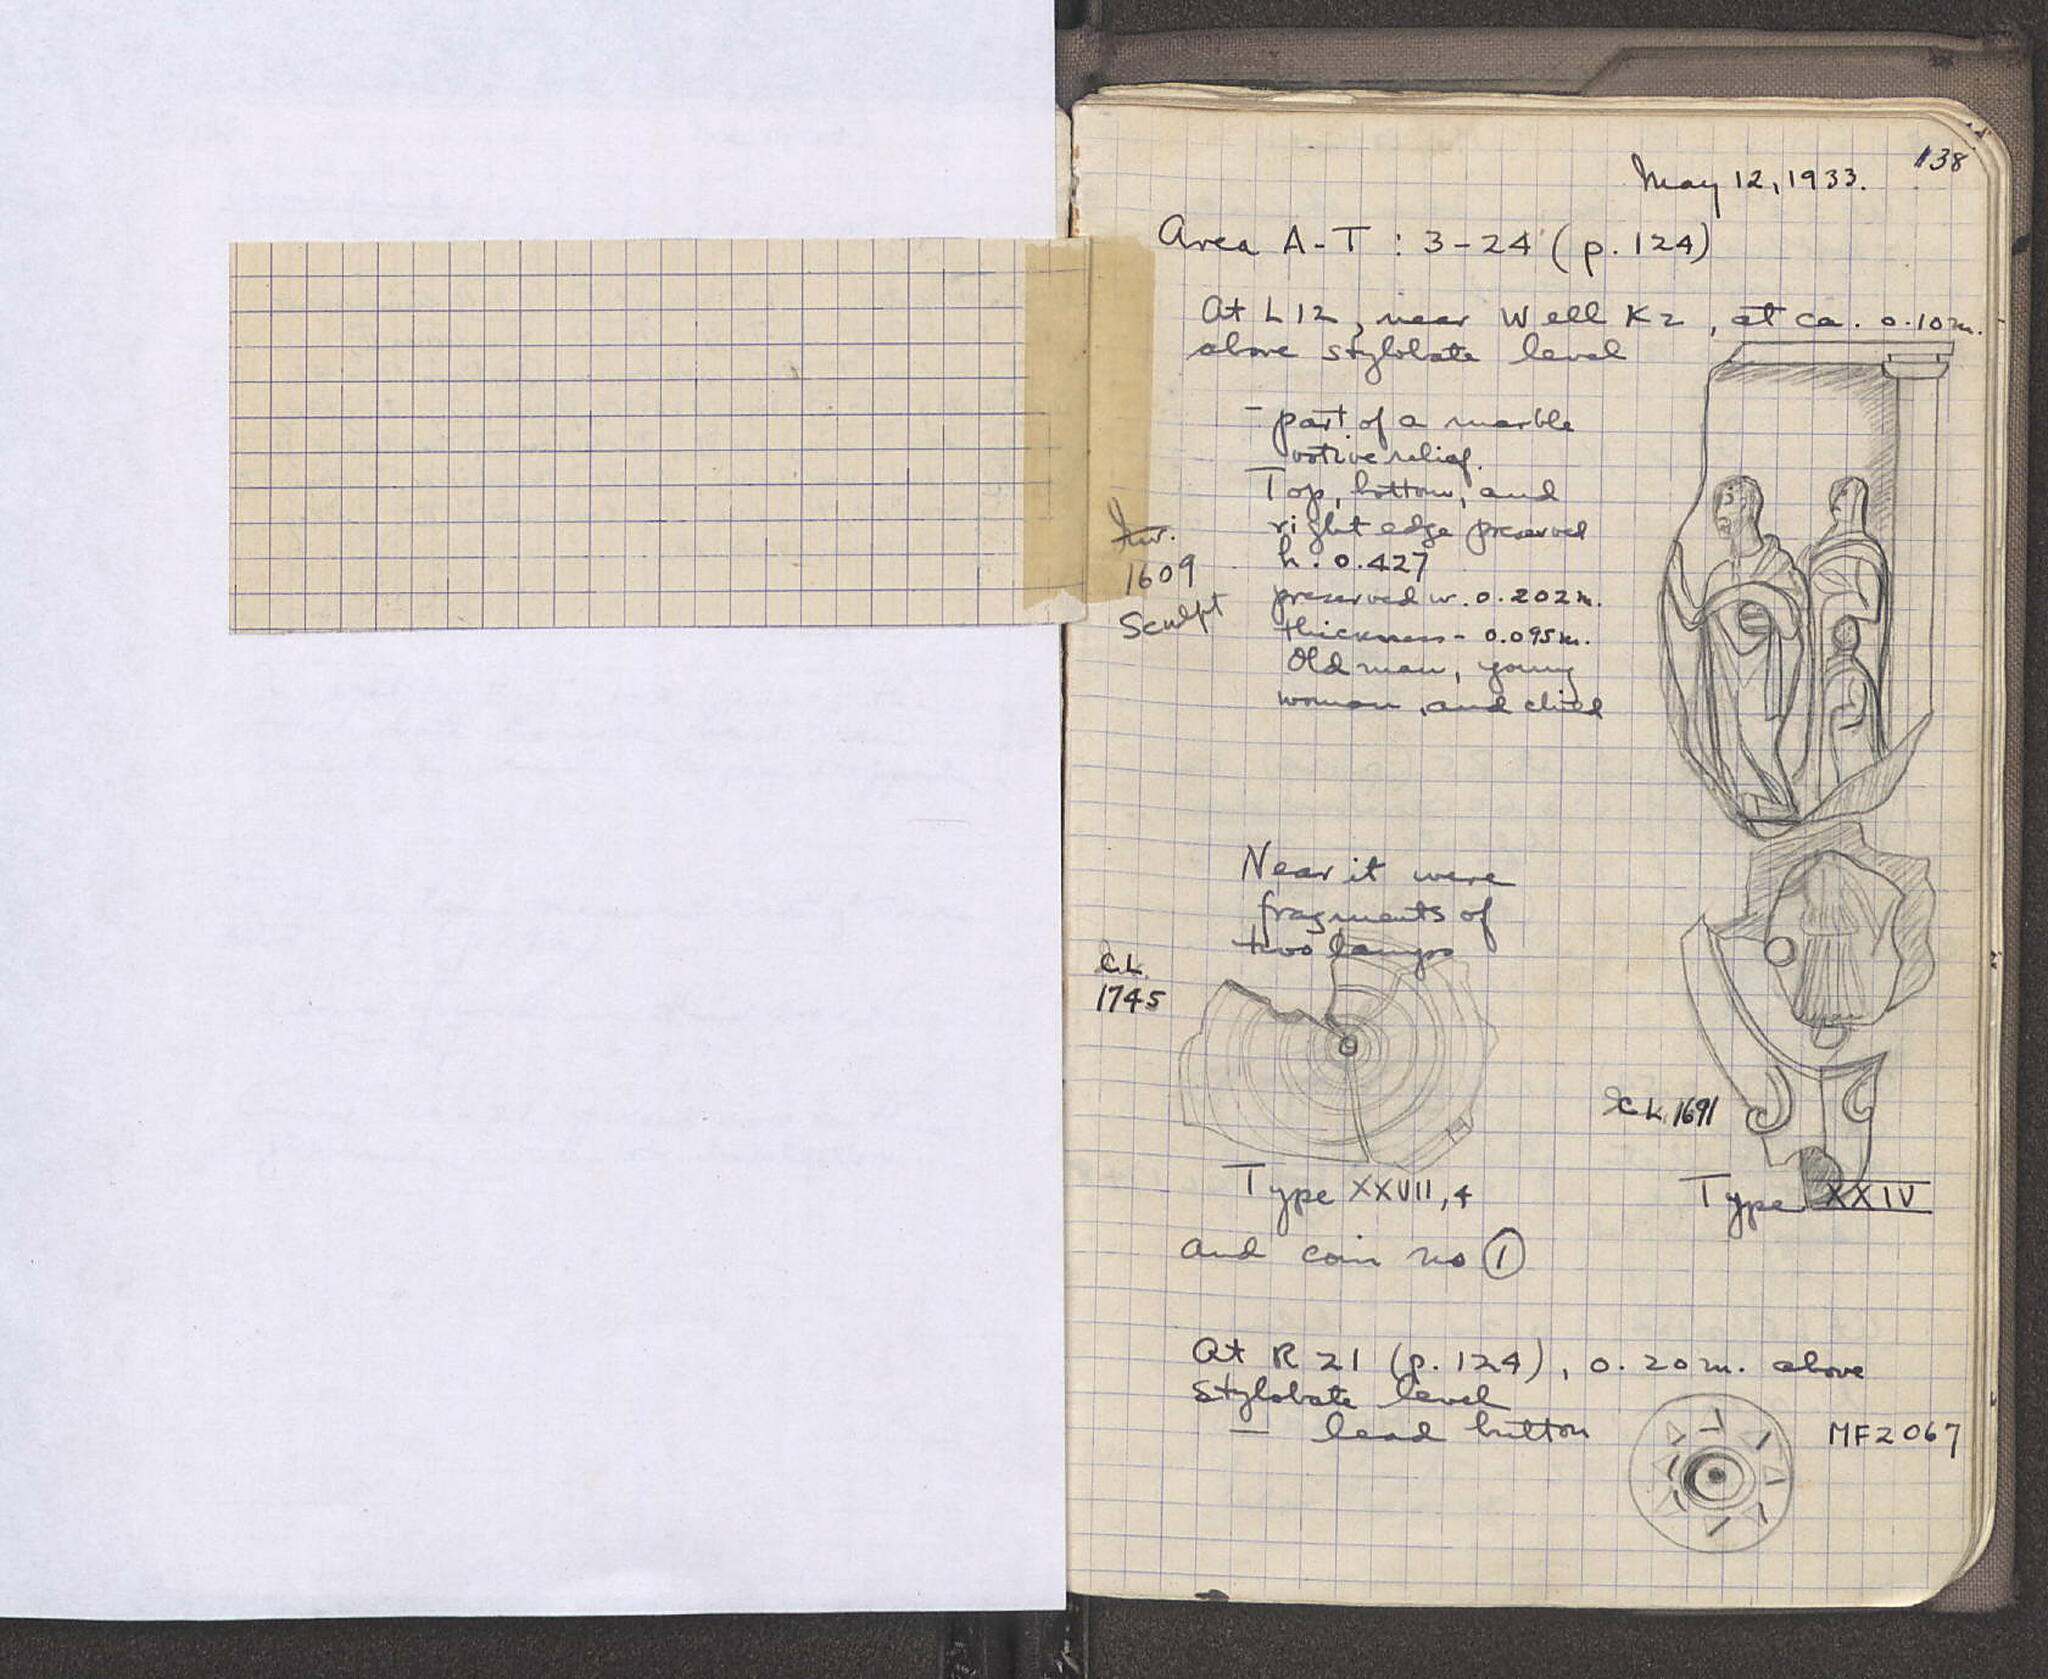 138
May 12, 1933.
Area A-T : 3-24 (p. 124)
At L 12, near Well K2, at ca. 0.10 m.
above stylobate level
- part of a marble
votive relief.
Top, bottom, and
right edge preserved
h. 0.427
preserved w. 0.202 m.
thickness - 0.095 m.
Old man, young
woman, and child
Inv.
1609
Sculpt
Near it were
fragments of
two lamps
C.L.
1745
C L 1691
Type XXVII, 4
Type XXIV
and coin no 1
At R 21 (p. 124), 0.20 m. above
stylobate level
- lead button
MF2067